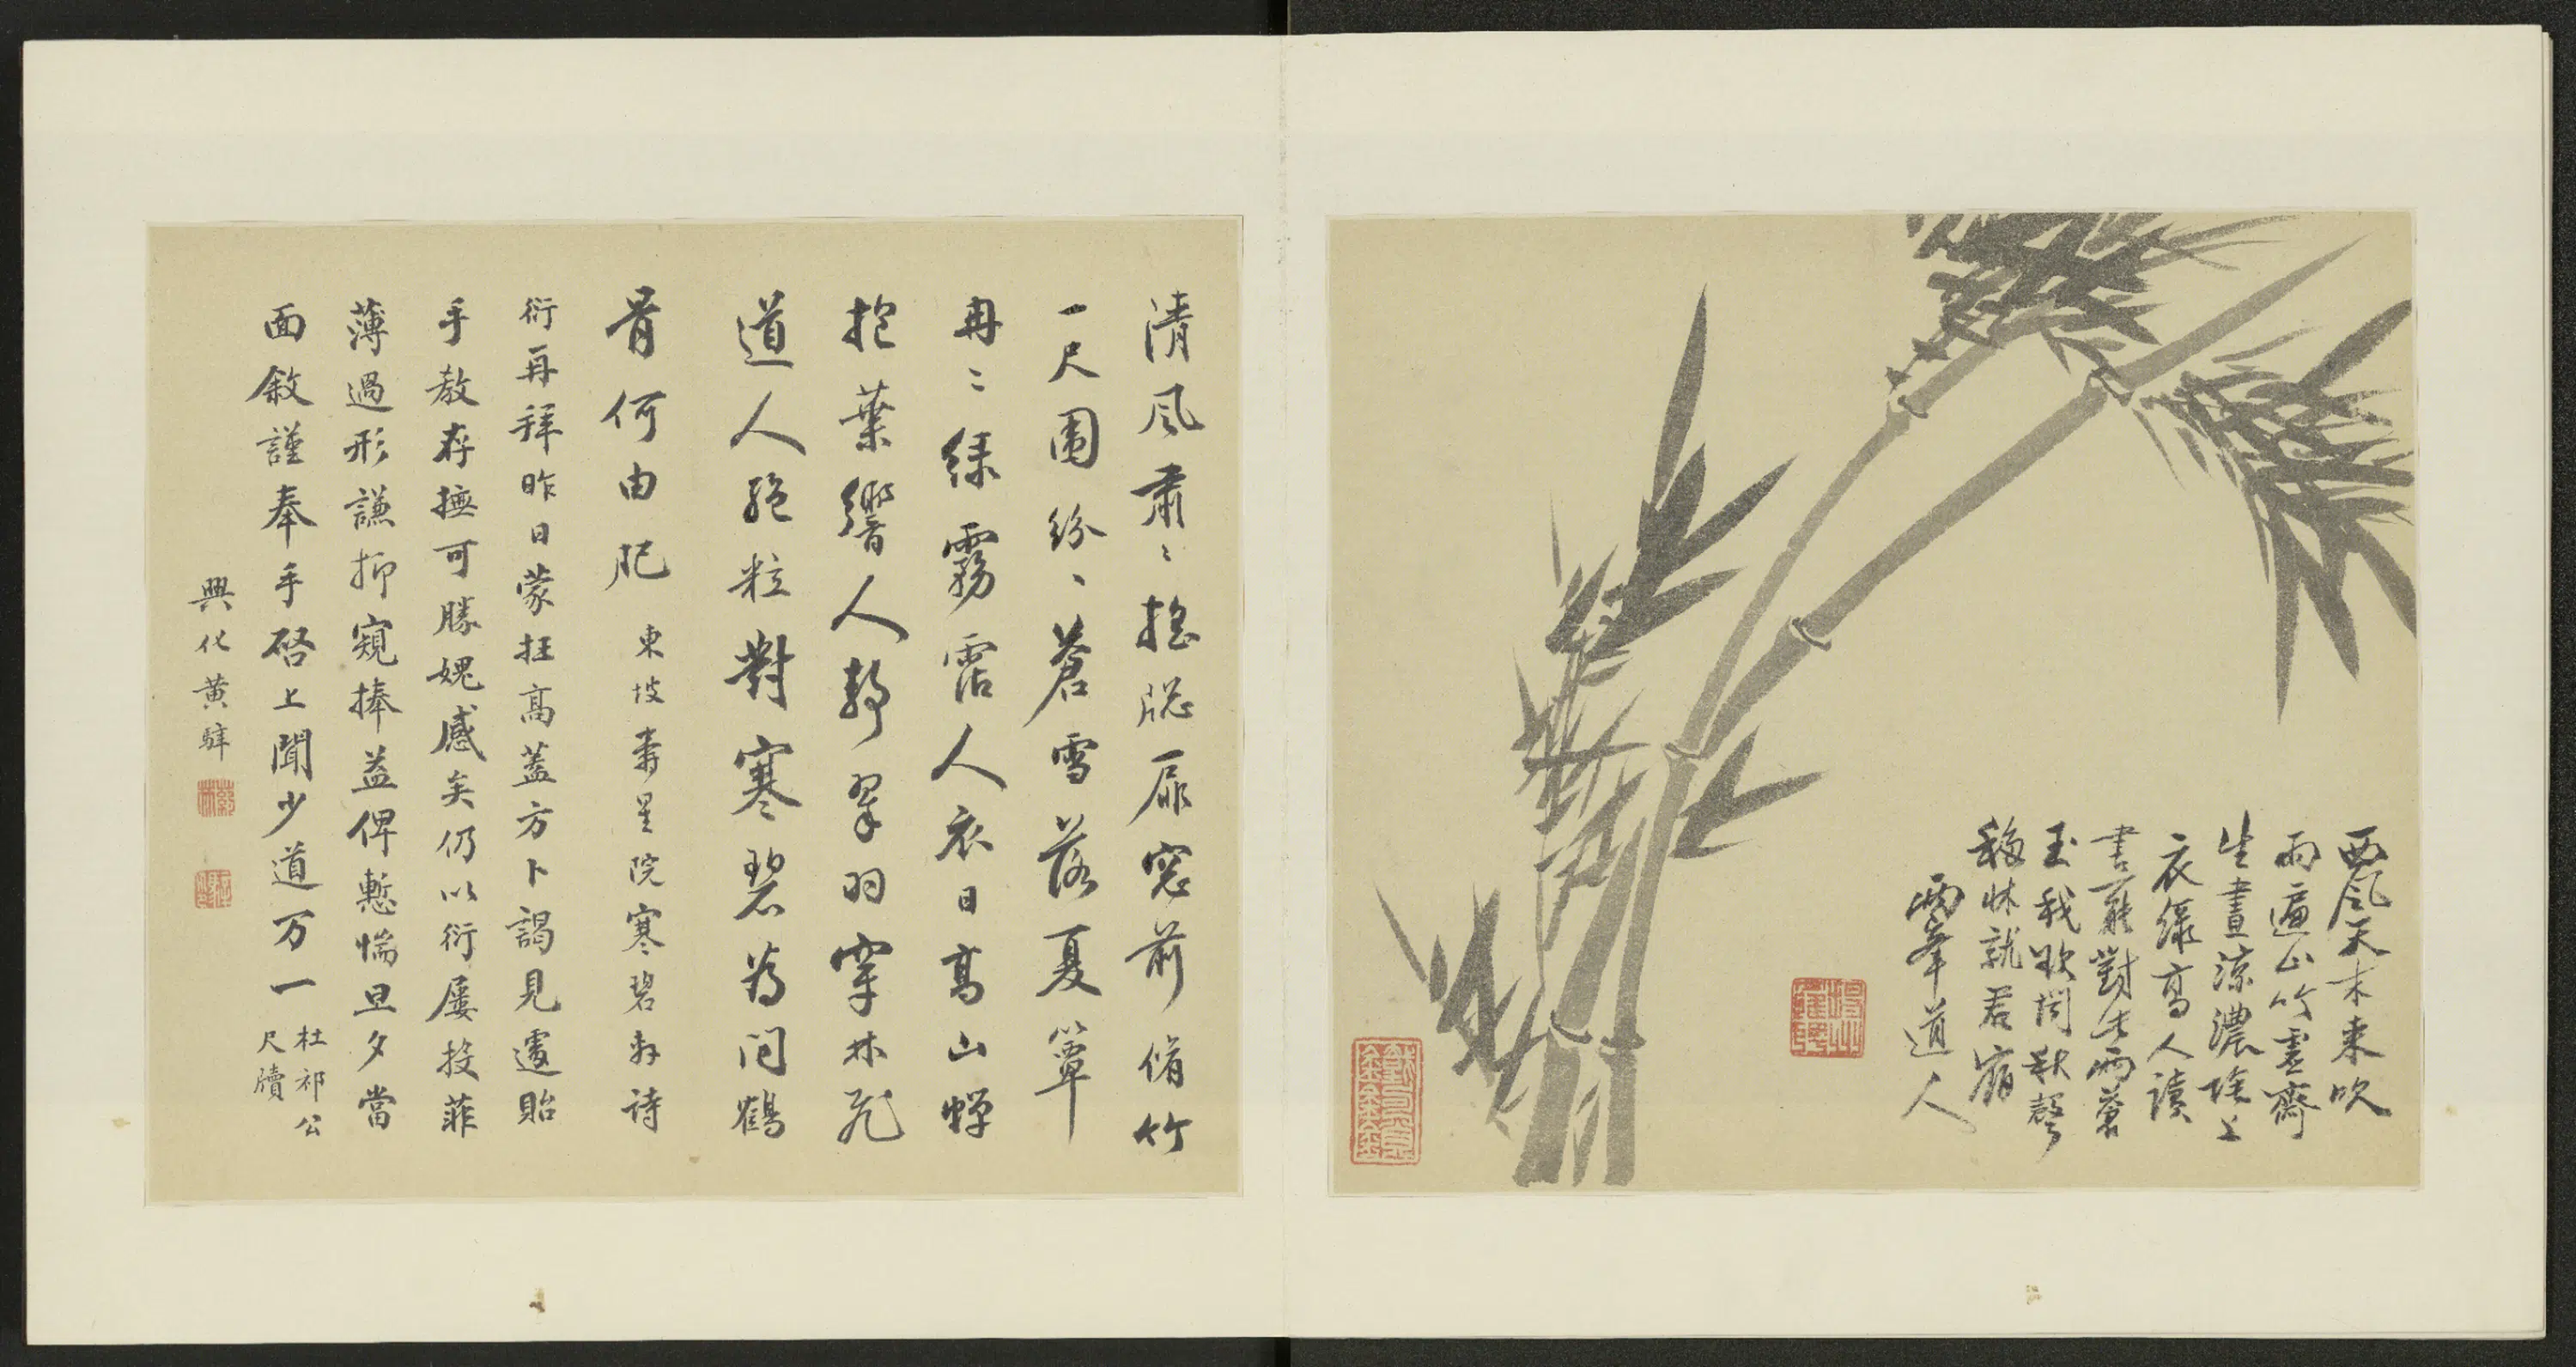 西風天末來吹
雨遍山竹虛齋
生晝涼濃陰上
衣綠高人讀
書罷對此兩蒼
玉我欲問秋聲
移牀就君宿
兩峯道人
清風肅〻搖窓扉窓前脩竹
一尺圍紛〻蒼雪落夏簟
冉〻綠霧霑人衣日高山蟬
抱葉響人靜翠羽穿林飛
道人絕粒對寒碧為問鶴
骨何由肥 東坡壽星院寒碧軒詩
衍再拜昨日蒙枉高蓋方卜謁見遽貽
手教存撫可勝媿感矣仍以衍屢投菲
薄過形謙抑窺捧益俾慙惴旦夕當
面敘謹奉手啓上聞少道万一 杜祁公
尺牘
興化黃騂